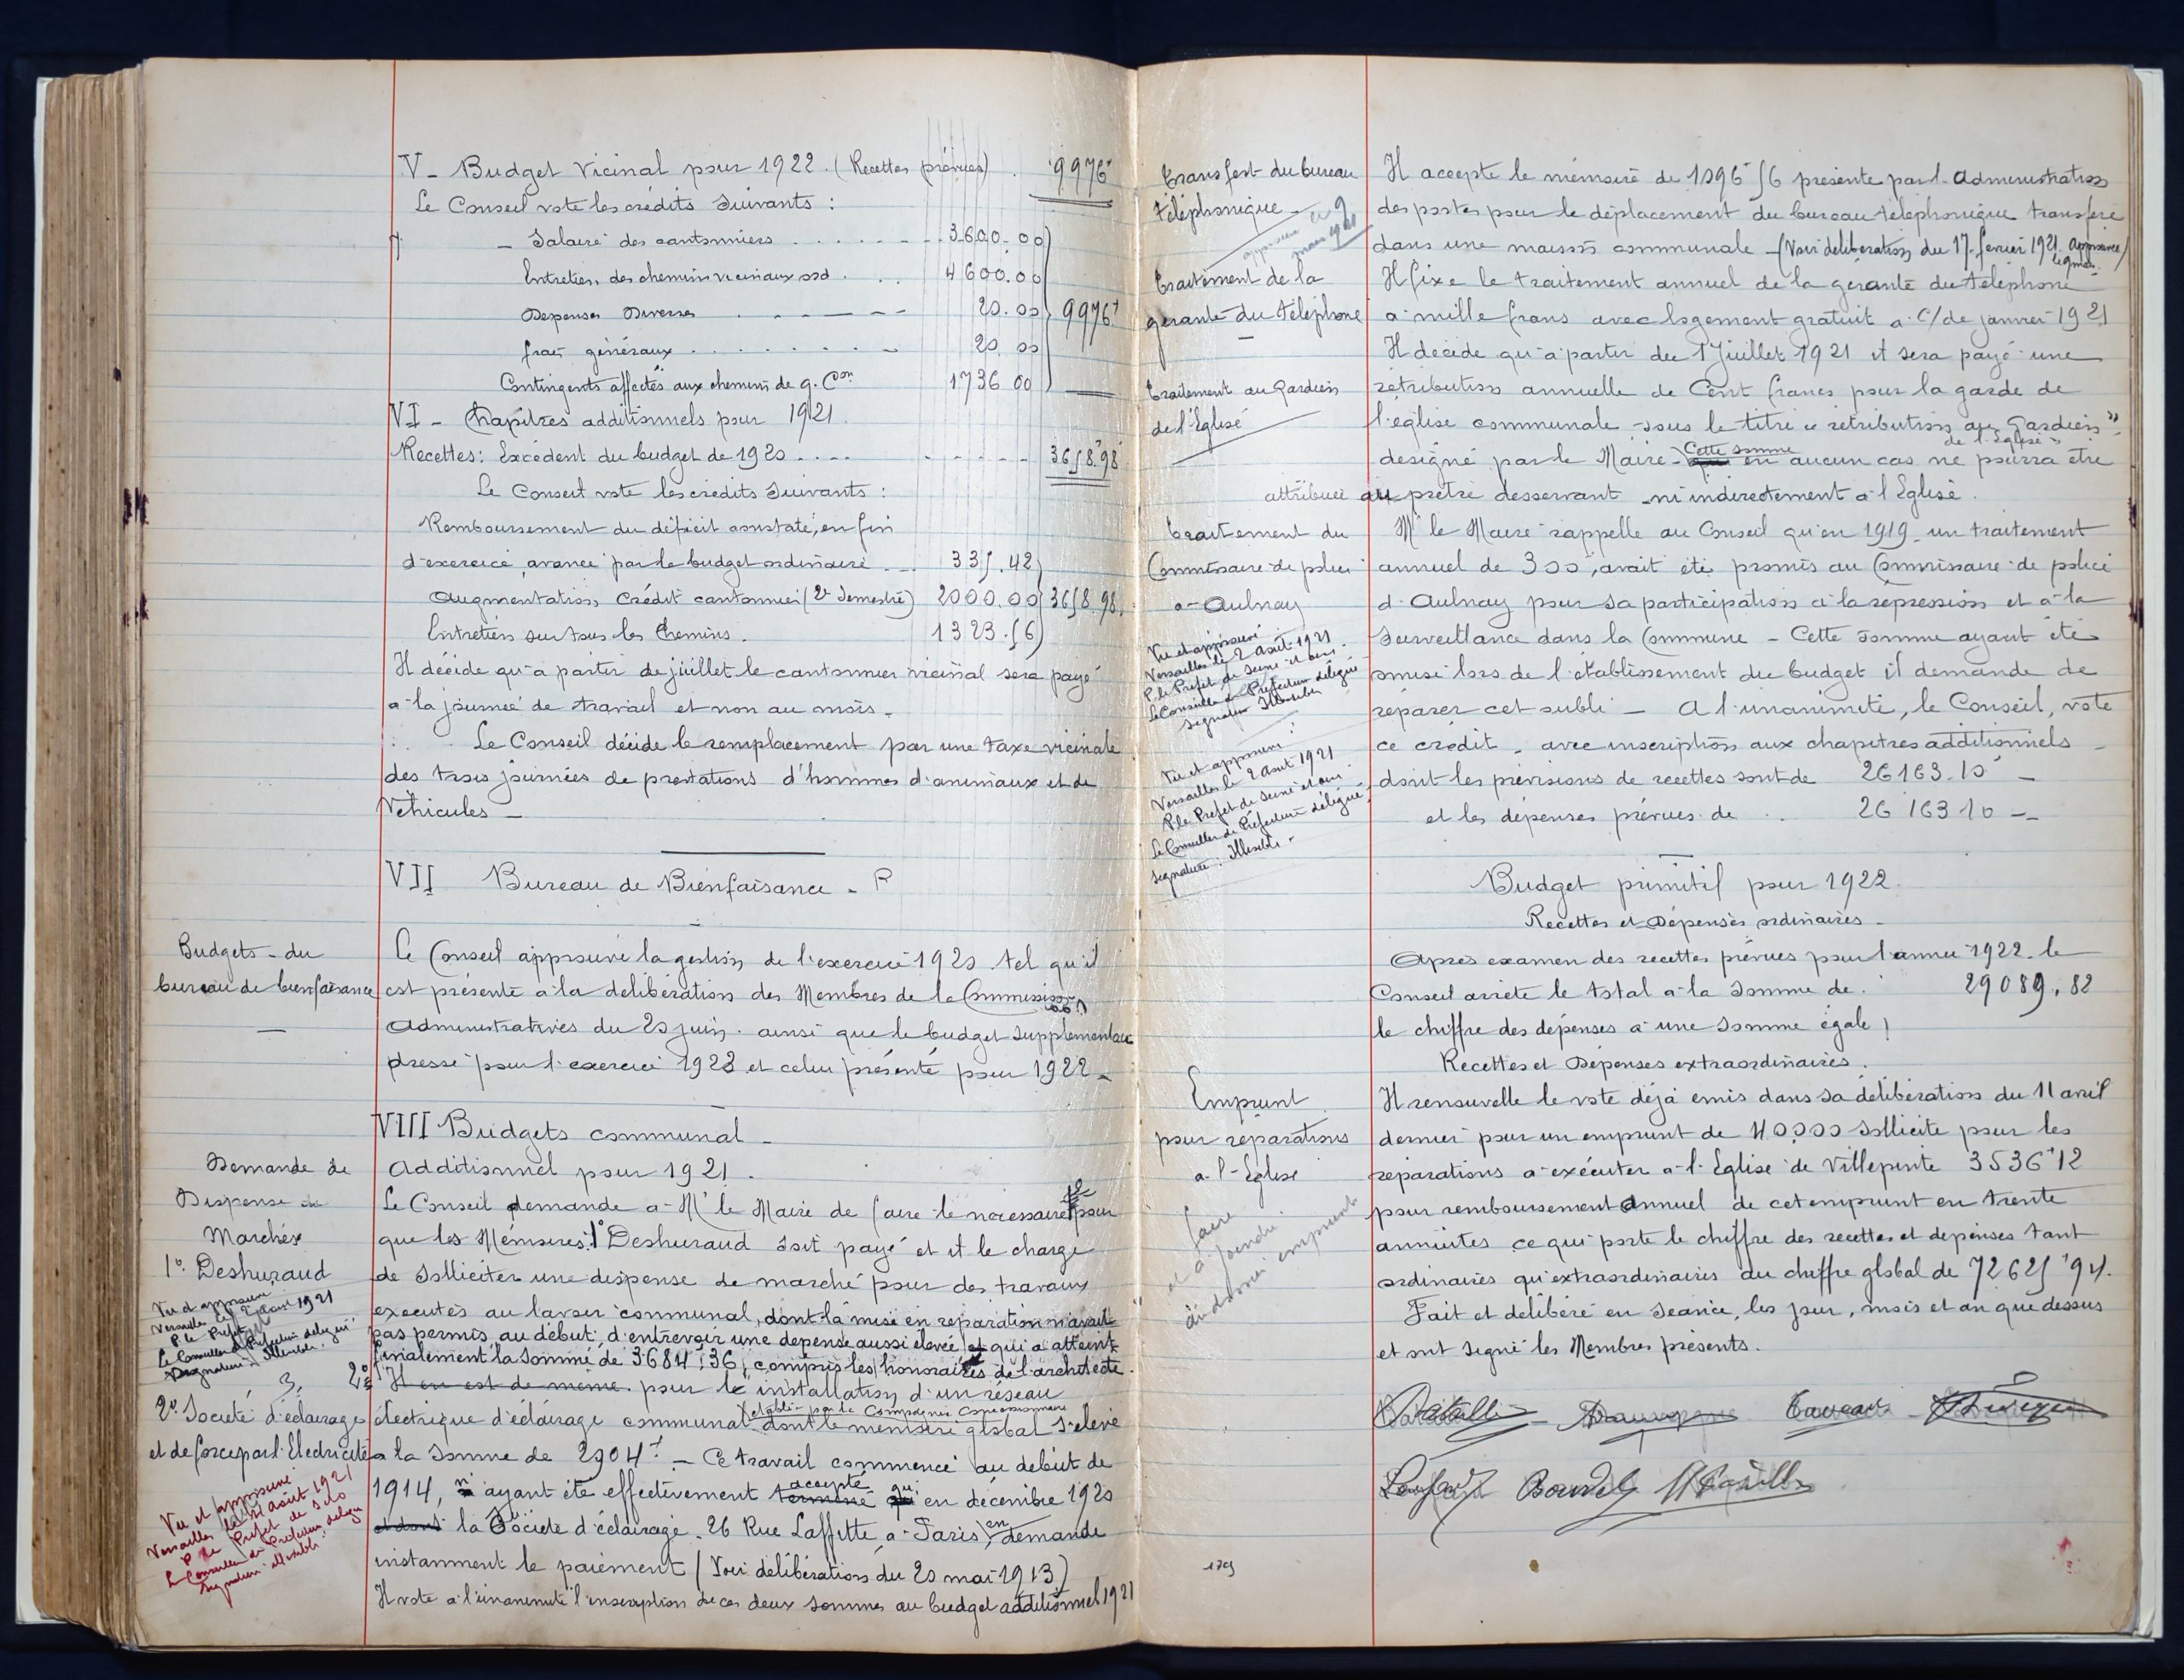 V - Budget Vicinal pour 1922. (Recettes prévues) . 9976
Le Conseil vote les crédits suivants :
- Salaire des cantonniers 3600.00
Entretien des chemins vicinaux ord. 4600.00
Depenses Diverses 20.00 9976
frais généraux 20.00
Contingents affectés aux chemins de g. Con 1736 00
VI - Chapitres additionnels pour 1921.
Recettes: Excédent du budget de 1920 3658.98
Le Conseil vote les crédits suivants :
Remboursement du déficit constaté, en fin
d'exercice, avancé par le budget ordinaire 335.42
Augmentation Crédit cantonnier (2e Semestre) 2000.00 3658.98
Entretien sur tous les Chemins. 1323.56
Il décide qu'à partir de juillet le cantonnier vicinal sera payé
à la journée de travail et non au mois.
Le Conseil décide le remplacement par une taxe vicinale
des trois journées de prestations d'hommes d'animaux et de
Véhicules -
VII Bureau de Bienfaisance -
Budgets du
bureau de bienfaisance
Le Conseil approuve la gestion de l'exercice 1920 tel qu'il
est présenté à la délibération des Membres de la Commission
Administratives du 20 juin. ainsi que le budget supplémentaire
dressé pour l'exercice 1922 et celui présenté pour 1922 -
VIII Budgets communal -
Additionnel pour 1921.
Demande de
Dispense de
Marchés
1º Deshuraud
Vu et approuvé
Versailles le 2 août 1921
P. le Préfet
Le Conseiller de Préfecture délégué
Signature: Illisible.
Le Conseil demande à Mr le Maire de faire le nécessaire pour
que les Mémoires: 1º Deshuraud soit payé et il le charge
de solliciter une dispense de marché pour des travaux
executés au lavoir communal, dont la mise en réparation n'avait
pas permis au début, d'entrevoir une dépense aussi élevée et qui a atteint
finalement la somme de 3684,36, compris les honoraires de l'architecte.
2º Il en est de meme pour le installation d'un réseau
électrique d'éclairage communal établi par la Compagnie Concessionnaire dont le mémoire global s'élève
2º Société d'éclairage
et de force par l'Electricité
à la somme de 2904f. - Ce travail commencé au début de
1914, n'ayant été effectivement terminé accepté qu'en décembre 1920
et dont la Société d'éclairage, 26 Rue Laffitte, à Paris, en demande
instamment le paiement (Voir délibération du 20 mai 1913)
Il vote à l'unanimité l'inscription de ces deux sommes au budget additionnel 1921
Vu et approuvé
Versailles le 11 août 1921
P. le Préfet de S et O
Le Conseiller de Préfecture délégué
Signature illisible.
Transfert du bureau
téléphonique
approuvé le 9
mars 1921
Il accepte le mémoire de 1096 56 présenté par l'Administration
des postes pour le déplacement du bureau téléphonique transféré
dans une maison communale - (Voir délibération du 17 février 1921. Approuvée
le 9 mars.)
Traitement de la
gérante du téléphone
Il fixe le traitement annuel de la gérante du téléphone
à mille francs avec logement gratuit à c/ de janvier 1921
Il décide qu'à partir du 1 Juillet 1921 il sera payé une
Traitement au Gardien
de l'Eglise
rétribution annuelle de Cent francs pour la garde de
l'église communale sous le titre « rétribution au Gardien
de l'Eglise »
désigné par le Maire - Cette somme en aucun cas ne pourra être
attribuée au prêtre desservant ni indirectement à l'Eglise.
Traitement du
Commissaire de police
à Aulnay
Mr le Maire rappelle au Conseil qu'en 1919 un traitement
annuel de 300, avait été promis au Commissaire de police
d'Aulnay pour sa participation à la répression et à la
surveillance dans la Commune - Cette somme ayant été
omise lors de l'établissement du budget il demande de
réparer cet oubli - A l'unanimité, le Conseil, vote
ce crédit, avec inscription aux chapitres additionnels -
dont les prévisions de recettes sont de 26163.10 -
et les dépenses prévues de 26163 10 -
Vu et approuvé
Versailles le 2 août 1921
P. le Préfet de Seine et Oise
Le Conseiller de Préfecture délégué
Signature Illisible
Vu et approuvé
Versailles le 2 août 1921
P. le Préfet de Seine et Oise
Le Conseiller de Préfecture délégué
signature: Illisible.
Budget primitif pour 1922.
Recettes et Dépenses ordinaires -
Après examen des recettes prévues pour l'année 1922 le
Conseil arrête le total à la somme de 29089,82
le chiffre des dépenses à une somme égale
Recettes et Dépenses extraordinaires.
Emprunt
pour réparations
à l'Eglise
Faire
et à joindre
au dossier emprunt
Il renouvelle le vote déjà émis dans sa délibération du 11 avril
dernier pour un emprunt de 40.000 sollicité pour les
réparations à exécuter à l'Eglise de Villepinte 3536f12
pour remboursement annuel de cet emprunt en trente
annuités ce qui porte le chiffre des recettes et dépenses tant
ordinaires qu'extraordinaires au chiffre global de 72625f94.
Fait et délibéré en séance, les jour, mois et an que dessus
et ont signé les Membres présents.